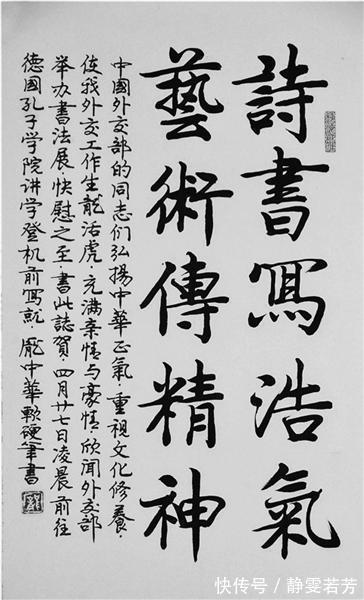 詩書冩浩氣
藝術傳精神
中國外交部的同志们弘揚中華正氣·重視文化修養·
使我外交工作生龍活虎·充满亲情与豪情·欣闻外交部
举办書法展·快慰之至書此誌賀·四月廿七日凌晨前往
德國孔子学院讲学登机前冩就 龐中華軟硬筆書
快传号 / 静雯若芳